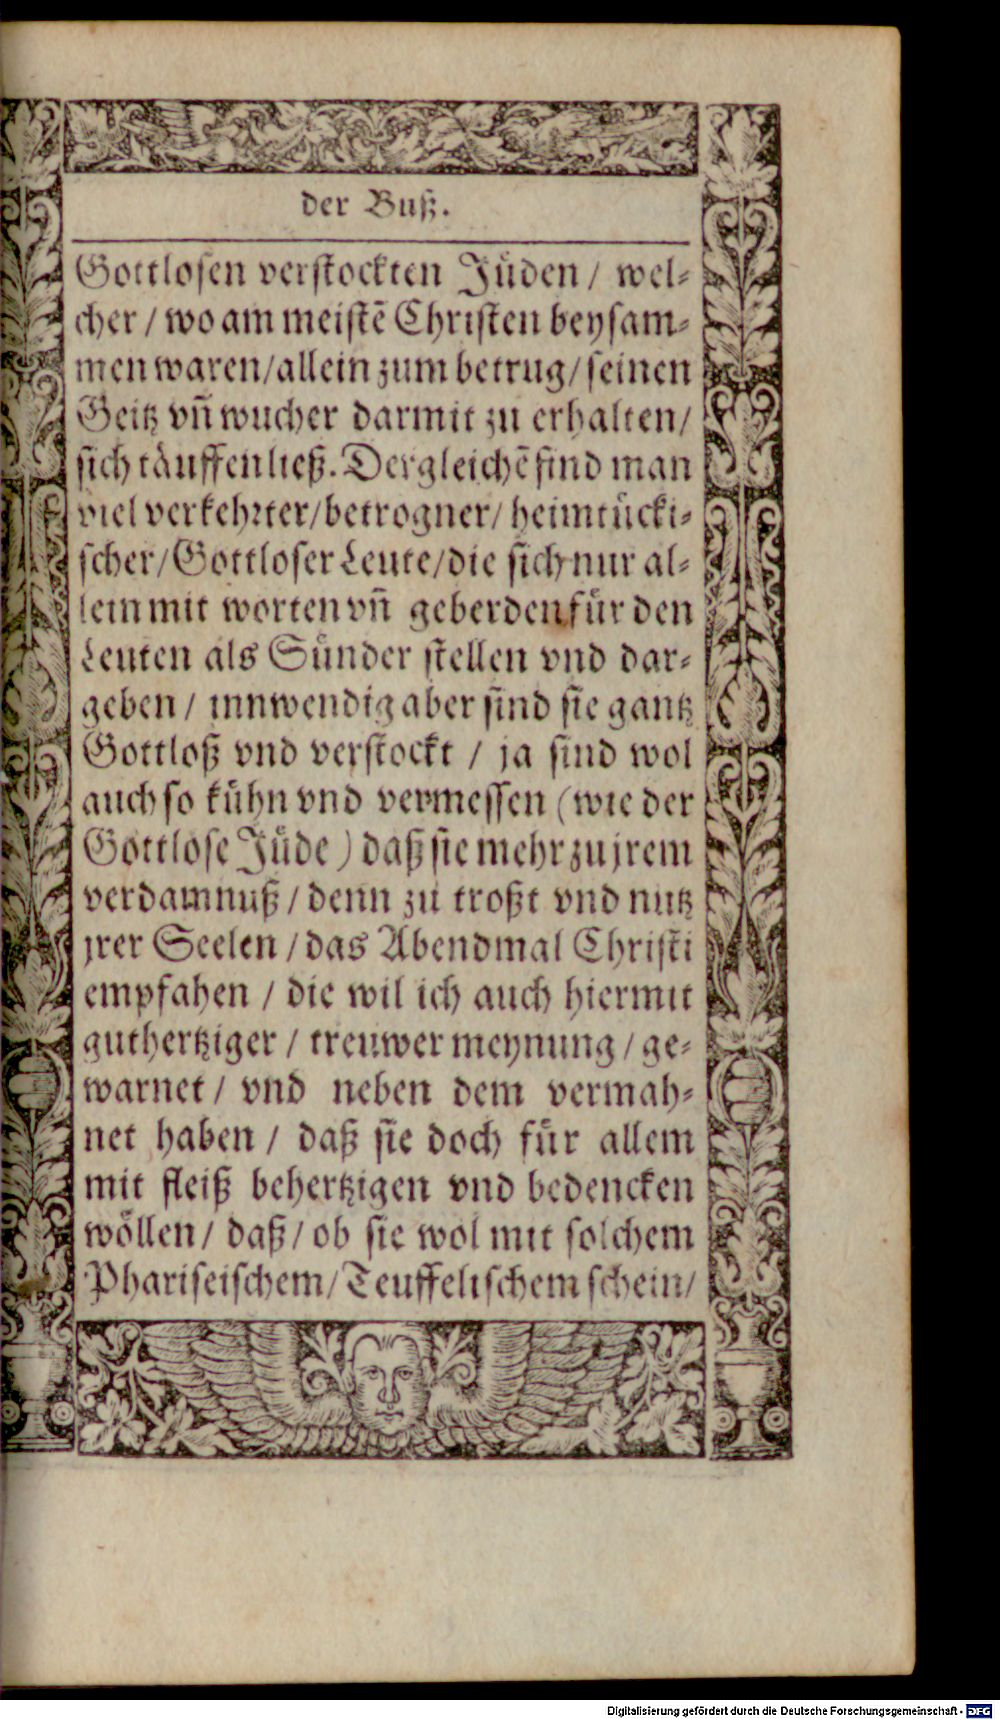 der Buß.
Gottlosen verstockten Jüden / wel-
cher / wo am meistẽ Christen beysam-
men waren / allein zum betrug / seinen
Geitz vñ wucher darmit zu erhalten /
sich täuffen ließ. Dergleichẽ find man
viel verkehrter / betrogner / heimtücki-
scher / Gottloser Leute / die sich nur al-
lein mit worten vñ geberden für den
Leuten als Sünder stellen vnd dar-
geben / innwendig aber sind sie gantz
Gottloß vnd verstockt / ja sind wol
auch so kühn vnd vermessen (wie der
Gottlose Jüde) daß sie mehr zu jrem
verdamnuß / denn zu troßt vnd nutz
jrer Seelen / das Abendmal Christi
empfahen / die wil ich auch hiermit
guthertziger / treuwer meynung / ge-
warnet / vnd neben dem vermah-
net haben / daß sie doch für allem
mit fleiß behertzigen vnd bedencken
wöllen / daß / ob sie wol mit solchem
Phariseischem / Teuffelischem schein /
Digitalisierung gefördert durch die Deutsche Forschungsgemeinschaft - DFG